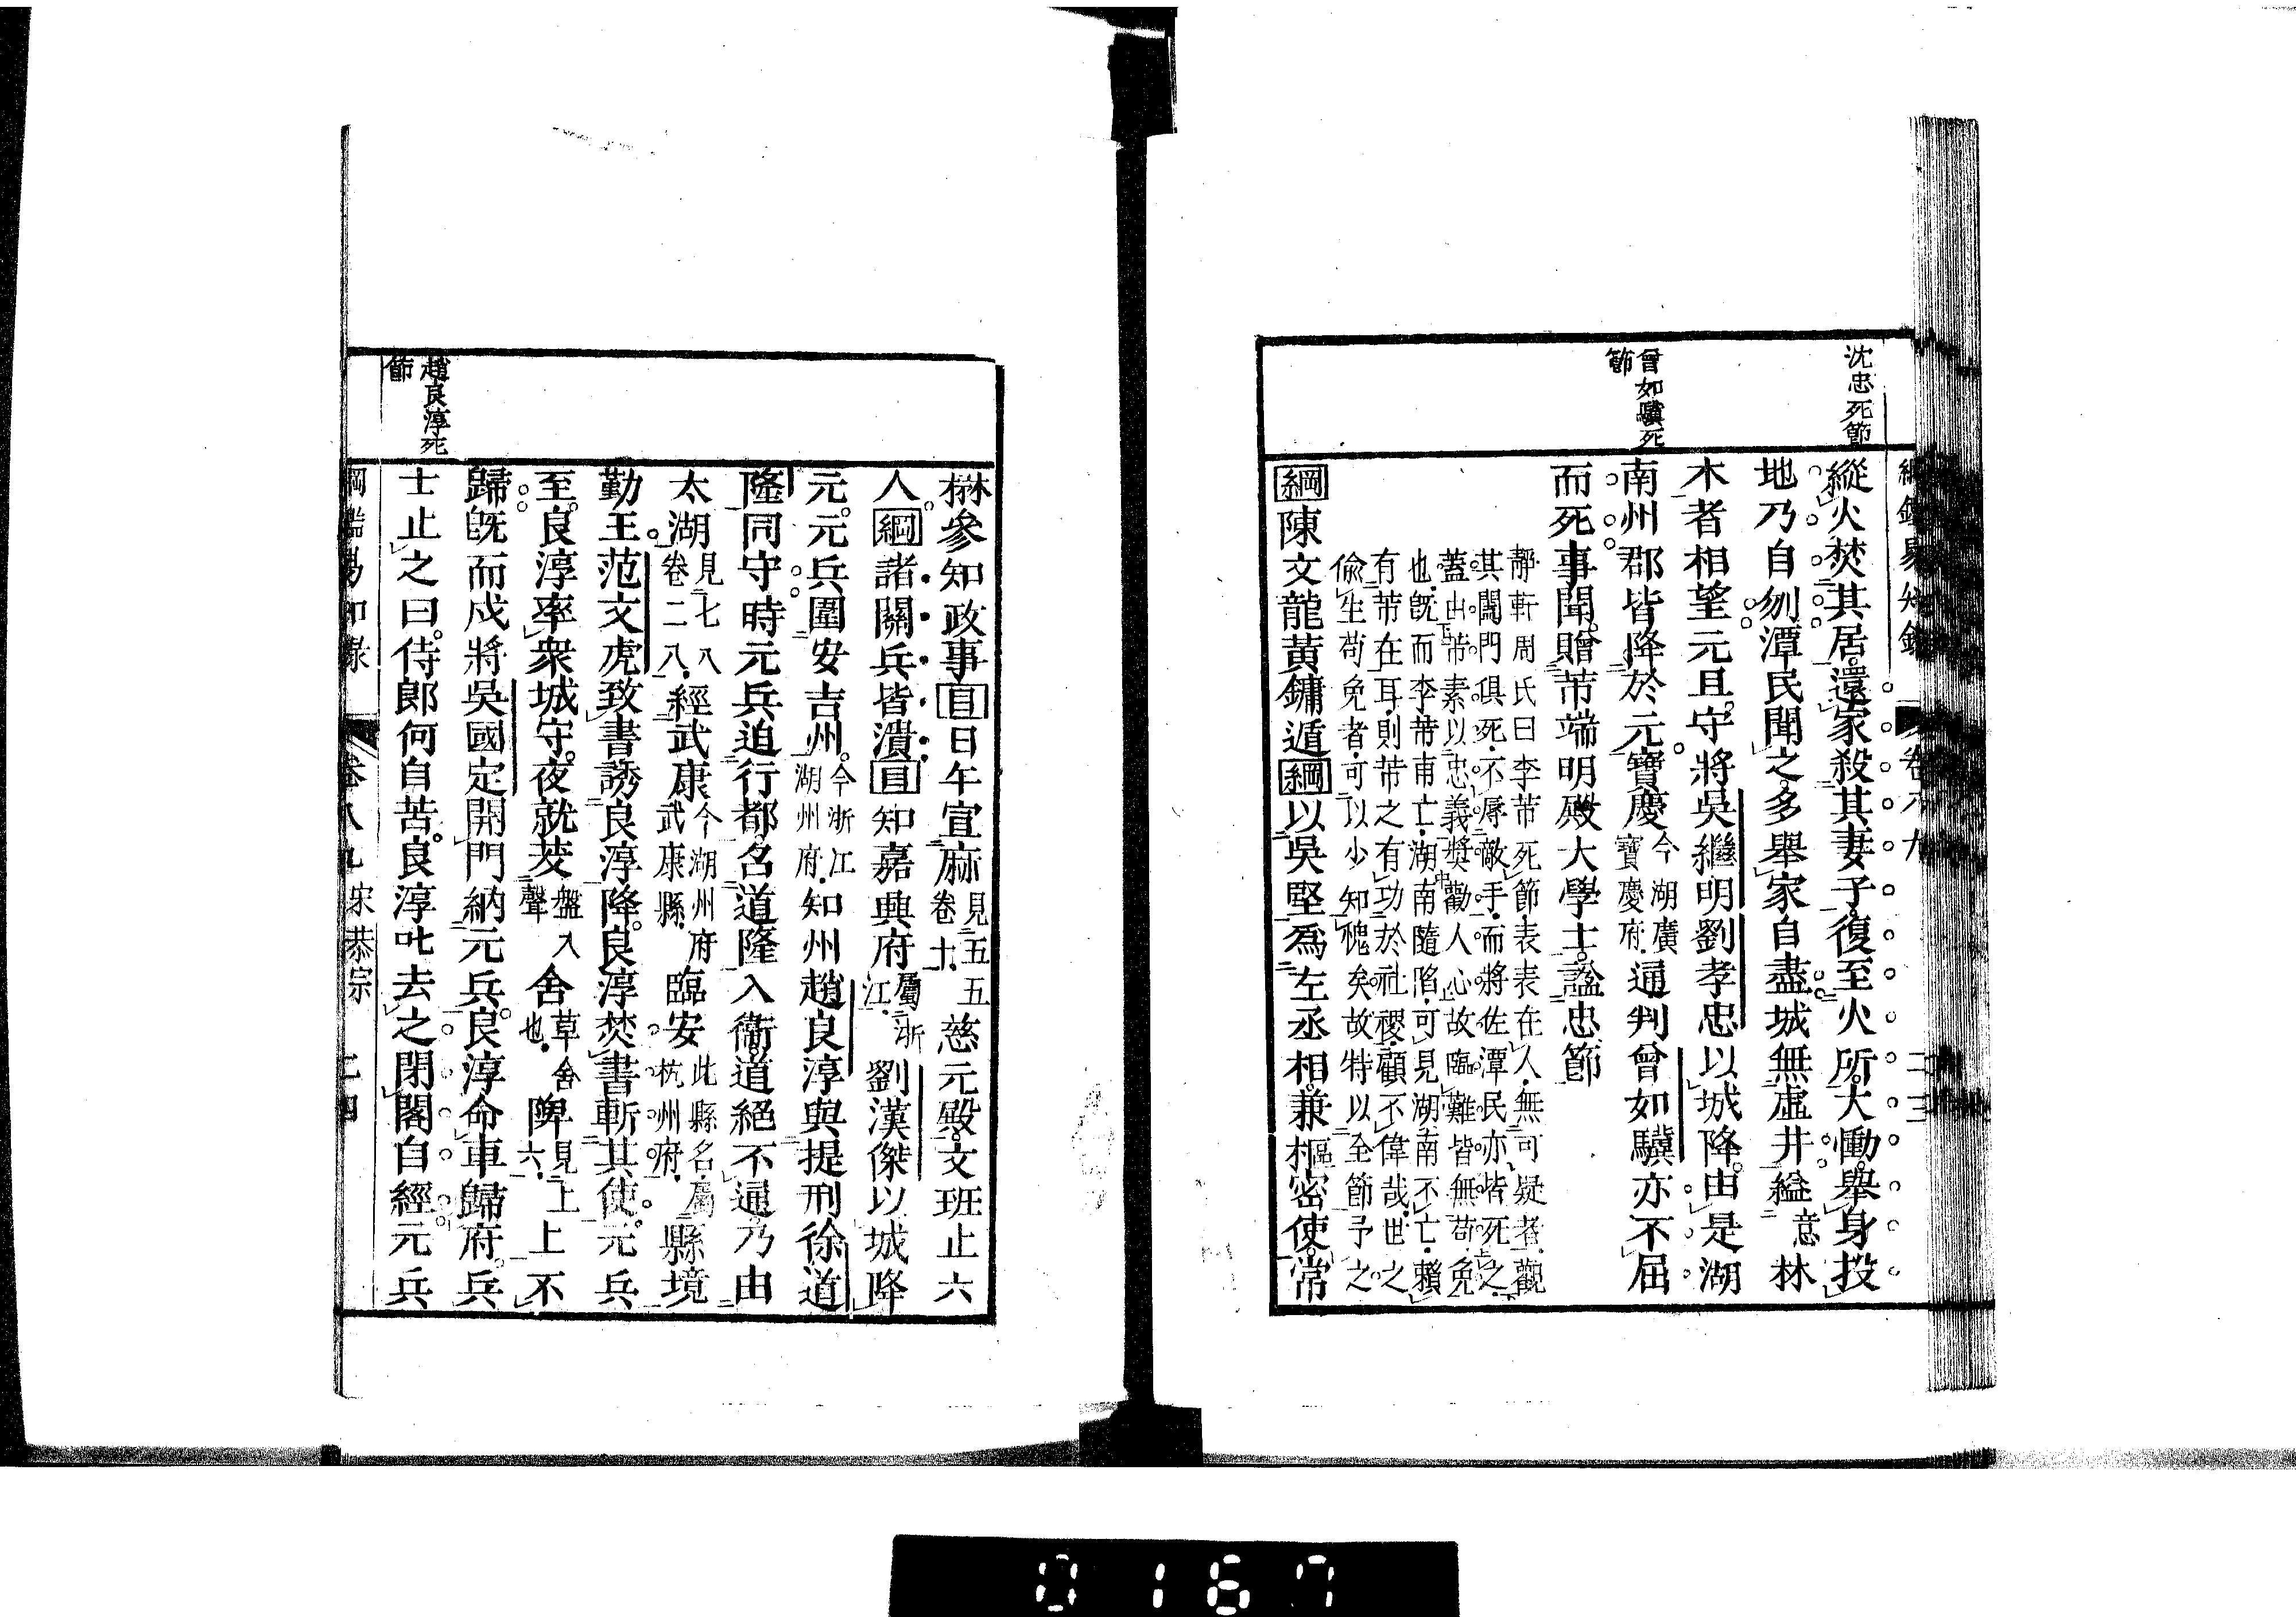 沈忠死節
曾如驥死
節
縱火焚其居還家殺其妻子復至火所大慟舉身投
地乃自刎潭民聞之多舉家自盡城無虛井縊意林
木者相望元旦守將吳繼明劉孝忠以城降由是湖
南州郡皆降於元寶慶今湖廣寶慶府通判曾如驥亦不屈
而死事聞贈芾端明殿大學士諡忠節
靜軒周氏曰李芾死節表表在人無可疑者觀
其闔門俱死不辱敵手而將佐潭民亦皆死之
蓋出芾素以忠義獎勸人心故臨難皆無苟免
也既而李芾南亡湖南隨陷可見湖南不亡賴
有芾在耳則芾之有功於社稷顧不偉哉世之
偷生苟免者可以少知愧矣故特以全節予之
綱陳文龍黃鏞遁綱以吳堅爲左丞相兼樞密使常
楙參知政事目日午宣麻見五五卷十慈元殿文班止六
人綱諸關兵皆潰目知嘉興府屬浙江劉漢傑以城降
元元兵圍安吉州今浙江湖州府知州趙良淳與提刑徐道
隆同守時元兵迫行都召道隆入衞道絕不通乃由
太湖見七八卷二八經武康今湖州府武康縣臨安此縣名屬杭州府縣境
勤王范文虎致書誘良淳降良淳焚書斬其使元兵
至良淳率衆城守夜就茇盤入聲舍草舍也陴見上六上不
歸既而戍將吳國定開門納元兵良淳命車歸府兵
士止之曰侍郎何自苦良淳叱去之閉閣自經元兵
趙良淳死
節
綱鑑易知錄 卷八九 宋恭宗 二四
0167